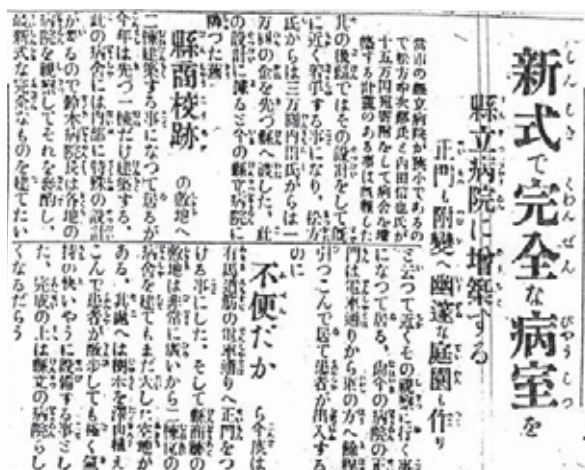 新式で完全な病室を
縣立病院に增築する
正門も附變へ幽邃な庭園も作り
當市の縣立病院が狹小であるの
で松方幸次郎氏と內田信也氏が
十五万圓宛寄附をして病舍を增
築する計畫のある事は既報した
其の後縣ではその設計をして既
に近く着手する事になり、松方
氏からは三万圓內田氏からは一
万圓の金を先づ縣へ渡した、此
の設計に據ると今の縣立病院に
隣つた舊
縣商校跡
の敷地へ
二棟建築する事になつて居るが
今年は先づ一棟だけ建築する、
此の病舍には內部に特殊の設計
が要るので鈴木病院長は各地の
病院を視察してそれを參酌し、
最新式な完全なものを建てたい
と云つて近くその視察に行く事
になつて居る、尙今の病院の正
門は電車通りから東の方へ餘程
引つこんで居て患者が出入する
のに
不便だか
ら今度は
有馬道筋の電車通りへ正門をつ
ける事にした、そして縣商跡の
敷地は非常に廣いから二棟位の
病舍を建てもまだ大した空地が
ある、其處へは樹木を澤山植え
こんで患者が散步しても極く氣
持の快いやうに設備する事とし
た、完成の上は縣立の病院らし
くなるだらう